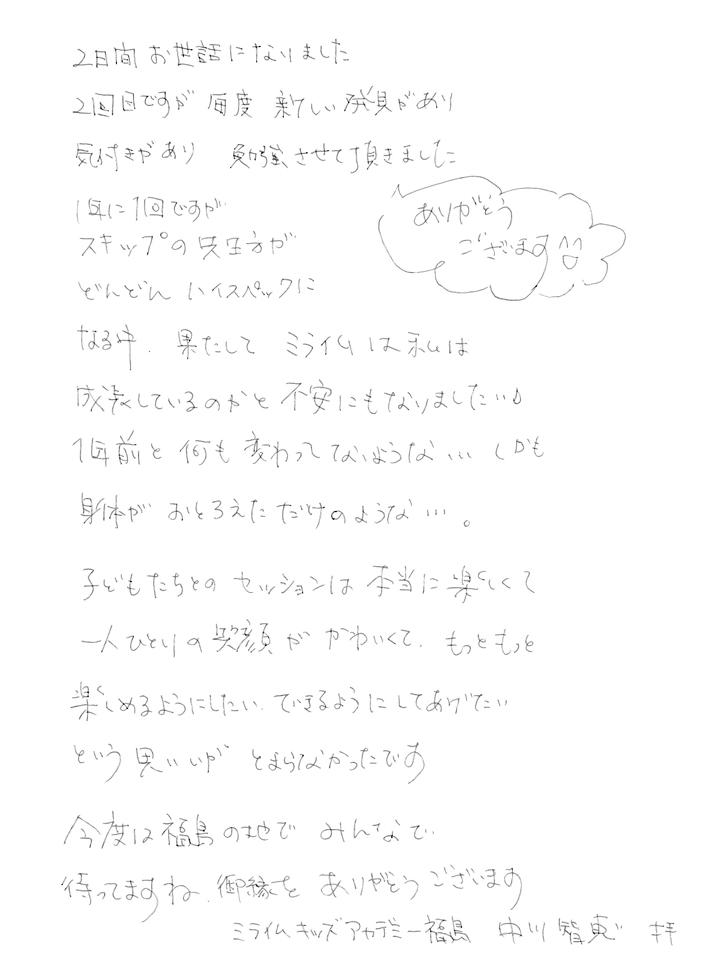 2日間 お世話になりました
2回目ですが 毎度 新しい発見があり
気付きがあり 勉強させて頂きました
1年に1回ですが
スキップの先生方が
どんどん ハイスペックに
ありがとう
ございます
なる中、果たして ミライムは私は
成長しているのかと 不安にもなりました…♪
1年前と何も変わってないような… しかも
身体が おとろえただけのような…。
子どもたちとの セッションは 本当に楽しくて
一人ひとりの笑顔が かわいくて、もっともっと
楽しめるようにしたい、できるようにしてあげたい
という思いが とまらなかったです
今度は福島の地で みんなで
待ってますね、御縁を ありがとうございます
ミライムキッズアカデミー福島 中川智恵 拝